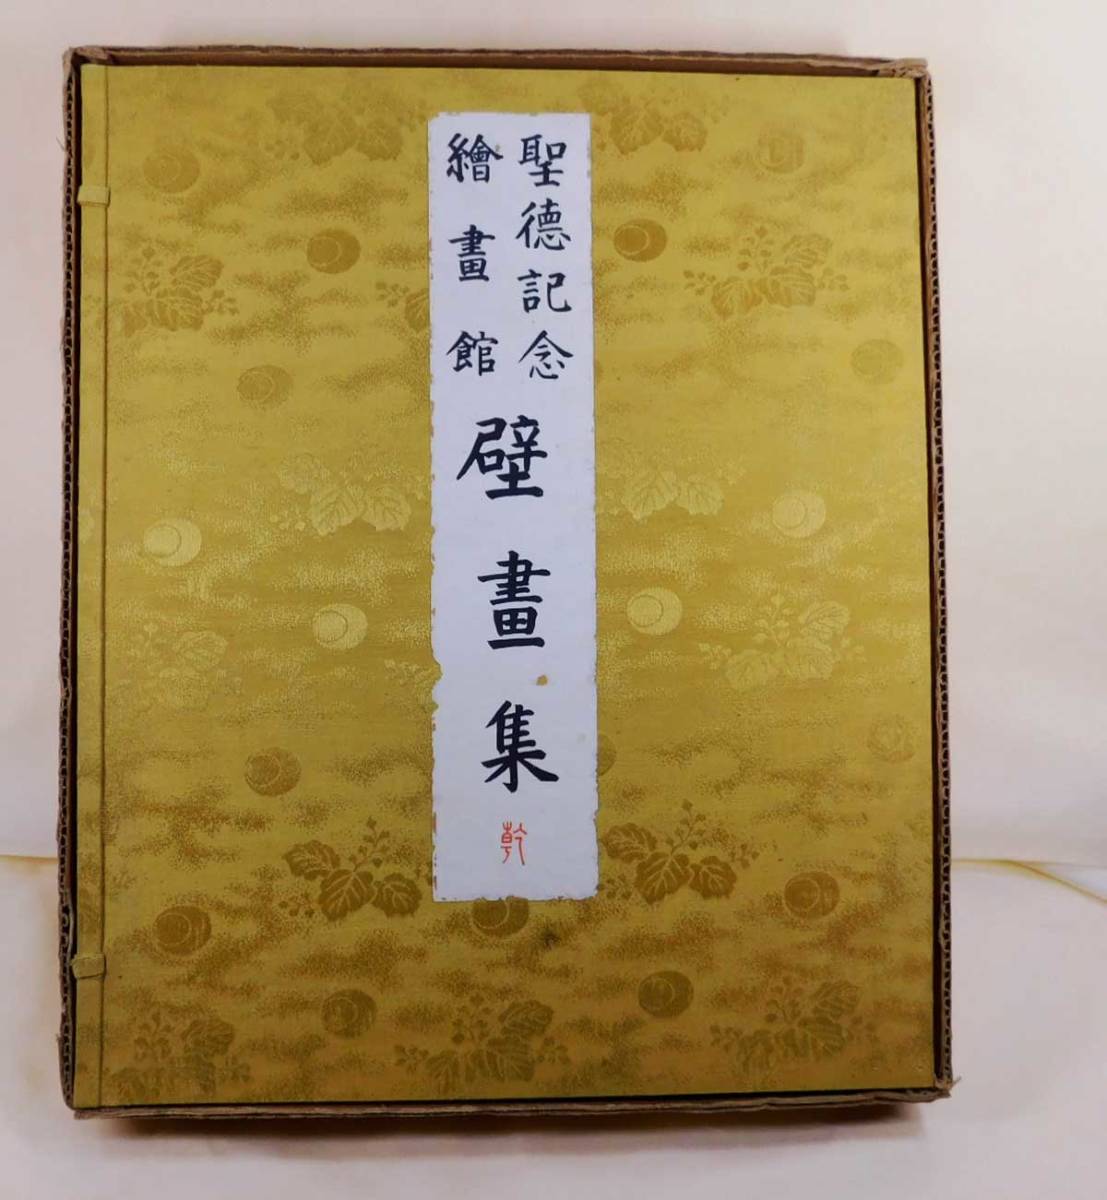 聖德記念
繪畫館
壁畫集
乾